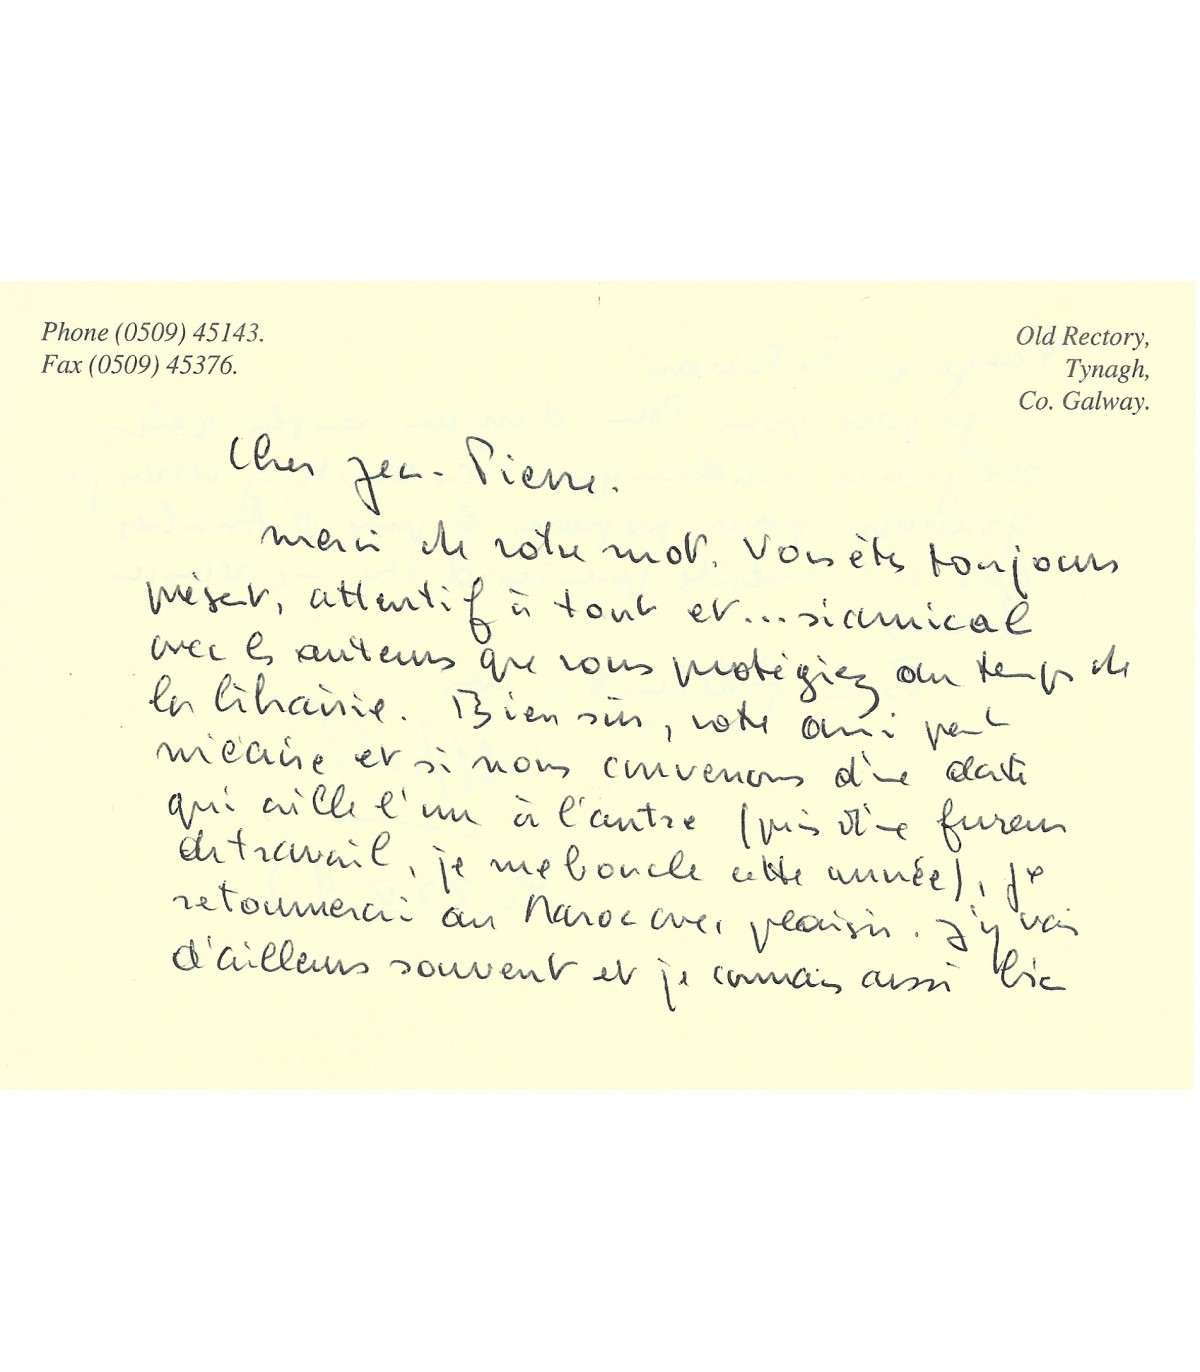 Phone (0509) 45143.
Fax (0509) 45376.
Old Rectory,
Tynagh,
Co. Galway.
Cher Jean-Pierre.
merci de votre mot. Vous êtes toujours
présent, attentif à tout et... si amical
avec les auteurs que vous protégiez du temps de
la librairie. Bien sûr, votre ami peut
m'écrire et si nous convenons d'une date
qui aille l'un à l'autre (pris d'une fureur
de travail, je me boucle cette année), je
retournerai au Maroc avec plaisir. J'y vais
d'ailleurs souvent et je connais aussi bien